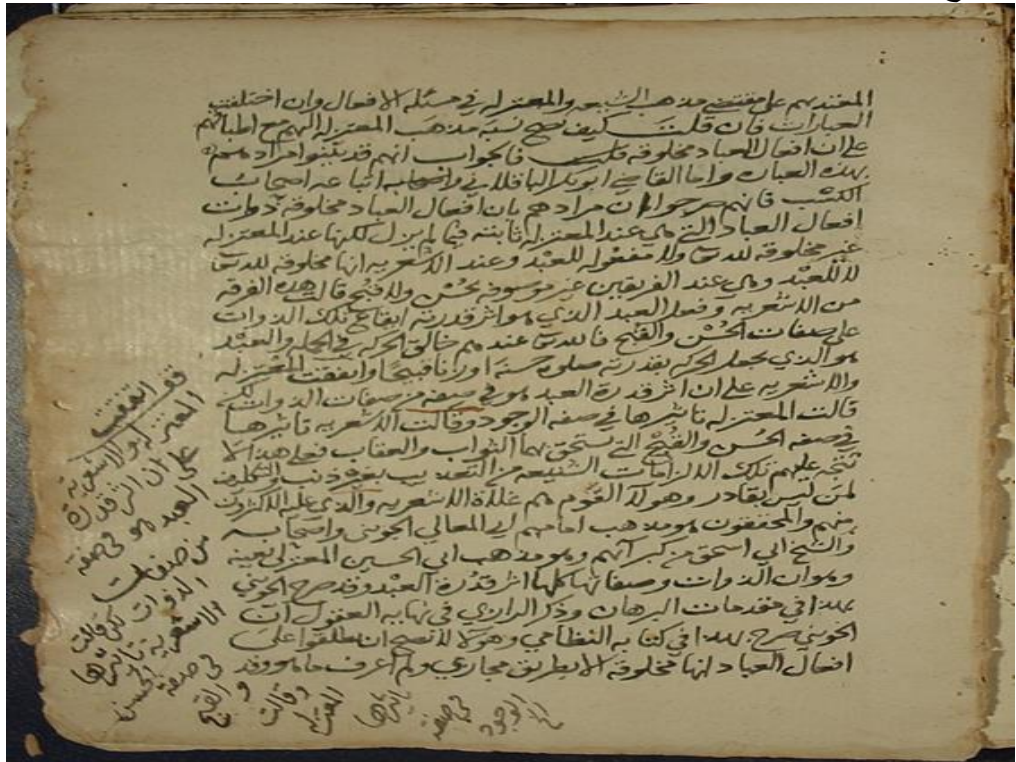 المعتد بهم على مقتضى مذهب الشيعه والمعتزله في مسئله الافعال وان اختلفت
العبارات فان قلت كيف تصح نسبه مذهب المعتزله اليهم مع اطباقهم
على ان افعال العباد مخلوقه قلت فالجواب انهم قد بينوا مرادهم
بهذه العباره واما القاضي ابو بكر الباقلاني واصحابه اتباعه اصحاب
الكسب فانهم صرحوا ان مرادهم بان افعال العباد مخلوقه ذوات
افعال العباد التي هي عند المعتزله ثابته فيما لم يزل لكنها عند المعتزله
غير مخلوقه لله ولا مفعوله للعبد وعند الاشعريه انها مخلوقه لله
لا للعبد وهي عند الفريقين غير موسومه بحسن ولا قبح قالت هذه الفرقه
من الاشعريه وفعل العبد الذي هو اثر قدرته ايقاع تلك الذوات
على صفات الحسن والقبح فالله عندهم خالق الحركه في الجمله والعبد
هو الذي يجعل الحركه بقدرته صلوه حسنه او زنا قبيحا واتفقت المعتزله
والاشعريه على ان اثر قدرة العبد هو في صفه من صفات الذوات لكن
قالت المعتزله تاثيرها في صفه الوجود وقالت الاشعريه تاثيرها
في صفه الحسن والقبح التي يستحق بها الثواب والعقاب فعلى هذا لا
تتجه عليهم تلك الالزامات الشنيعه من التعذيب بغير ذنب والتكليف
لمن ليس بقادر وهولاء القوم هم غلاة الاشعريه والذي عليه الاكثرون
منهم والمحققون هو مذهب امامهم ابي المعالي الجويني واصحابه
والشيخ ابي اسحق من كبرآئهم وهو مذهب ابي الحسين المعتزلي بعينه
وهو ان الذوات وصفاتها كلها اثر قدرة العبد وقد صرح الجويني
بهذا في مقدمات البرهان وذكر الرازي في نهايه العقول ان
الجويني صرح بهذا في كتابه النظامي وهولا لا تصح ان يطلقوا على
افعال العباد انها مخلوقه الا بطريق مجازي ولم اعرف ما هو وقد
قد اتفقت
المعتزله والاشعريه
على ان اثر قدرة
العبد هو في صفه
من صفات
الذوات لكن قالت
الاشعريه تاثيرها
في صفة الحسن
و القبح
وقالت
المعتزله
تاثيرها
في صفة
الوجود